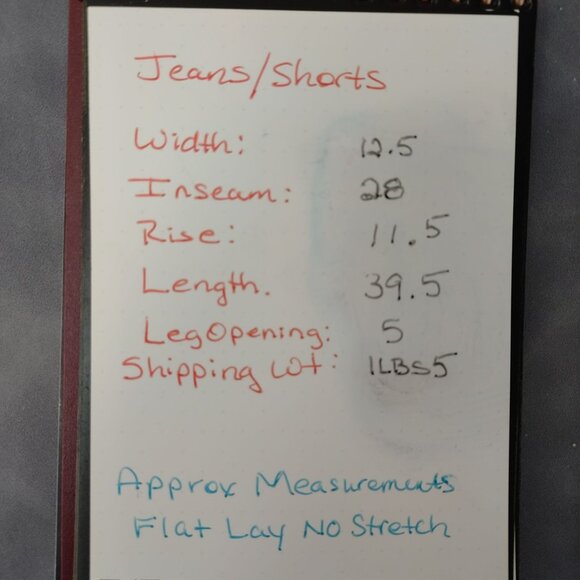 Jeans/Shorts
Width: 12.5
Inseam: 28
Rise: 11.5
Length. 39.5
Leg Opening: 5
Shipping Wt: 1LBS5
Approx Measurements
Flat Lay No Stretch